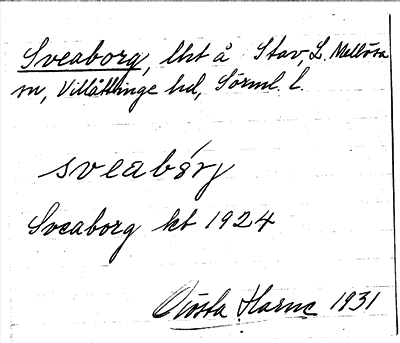 Sveaborg, lht å Stav, L. Mellösa
sn, Villåttinge hd, Sörml. l.
sveabórj
Sveaborg kt 1924
Gösta Harne 1931